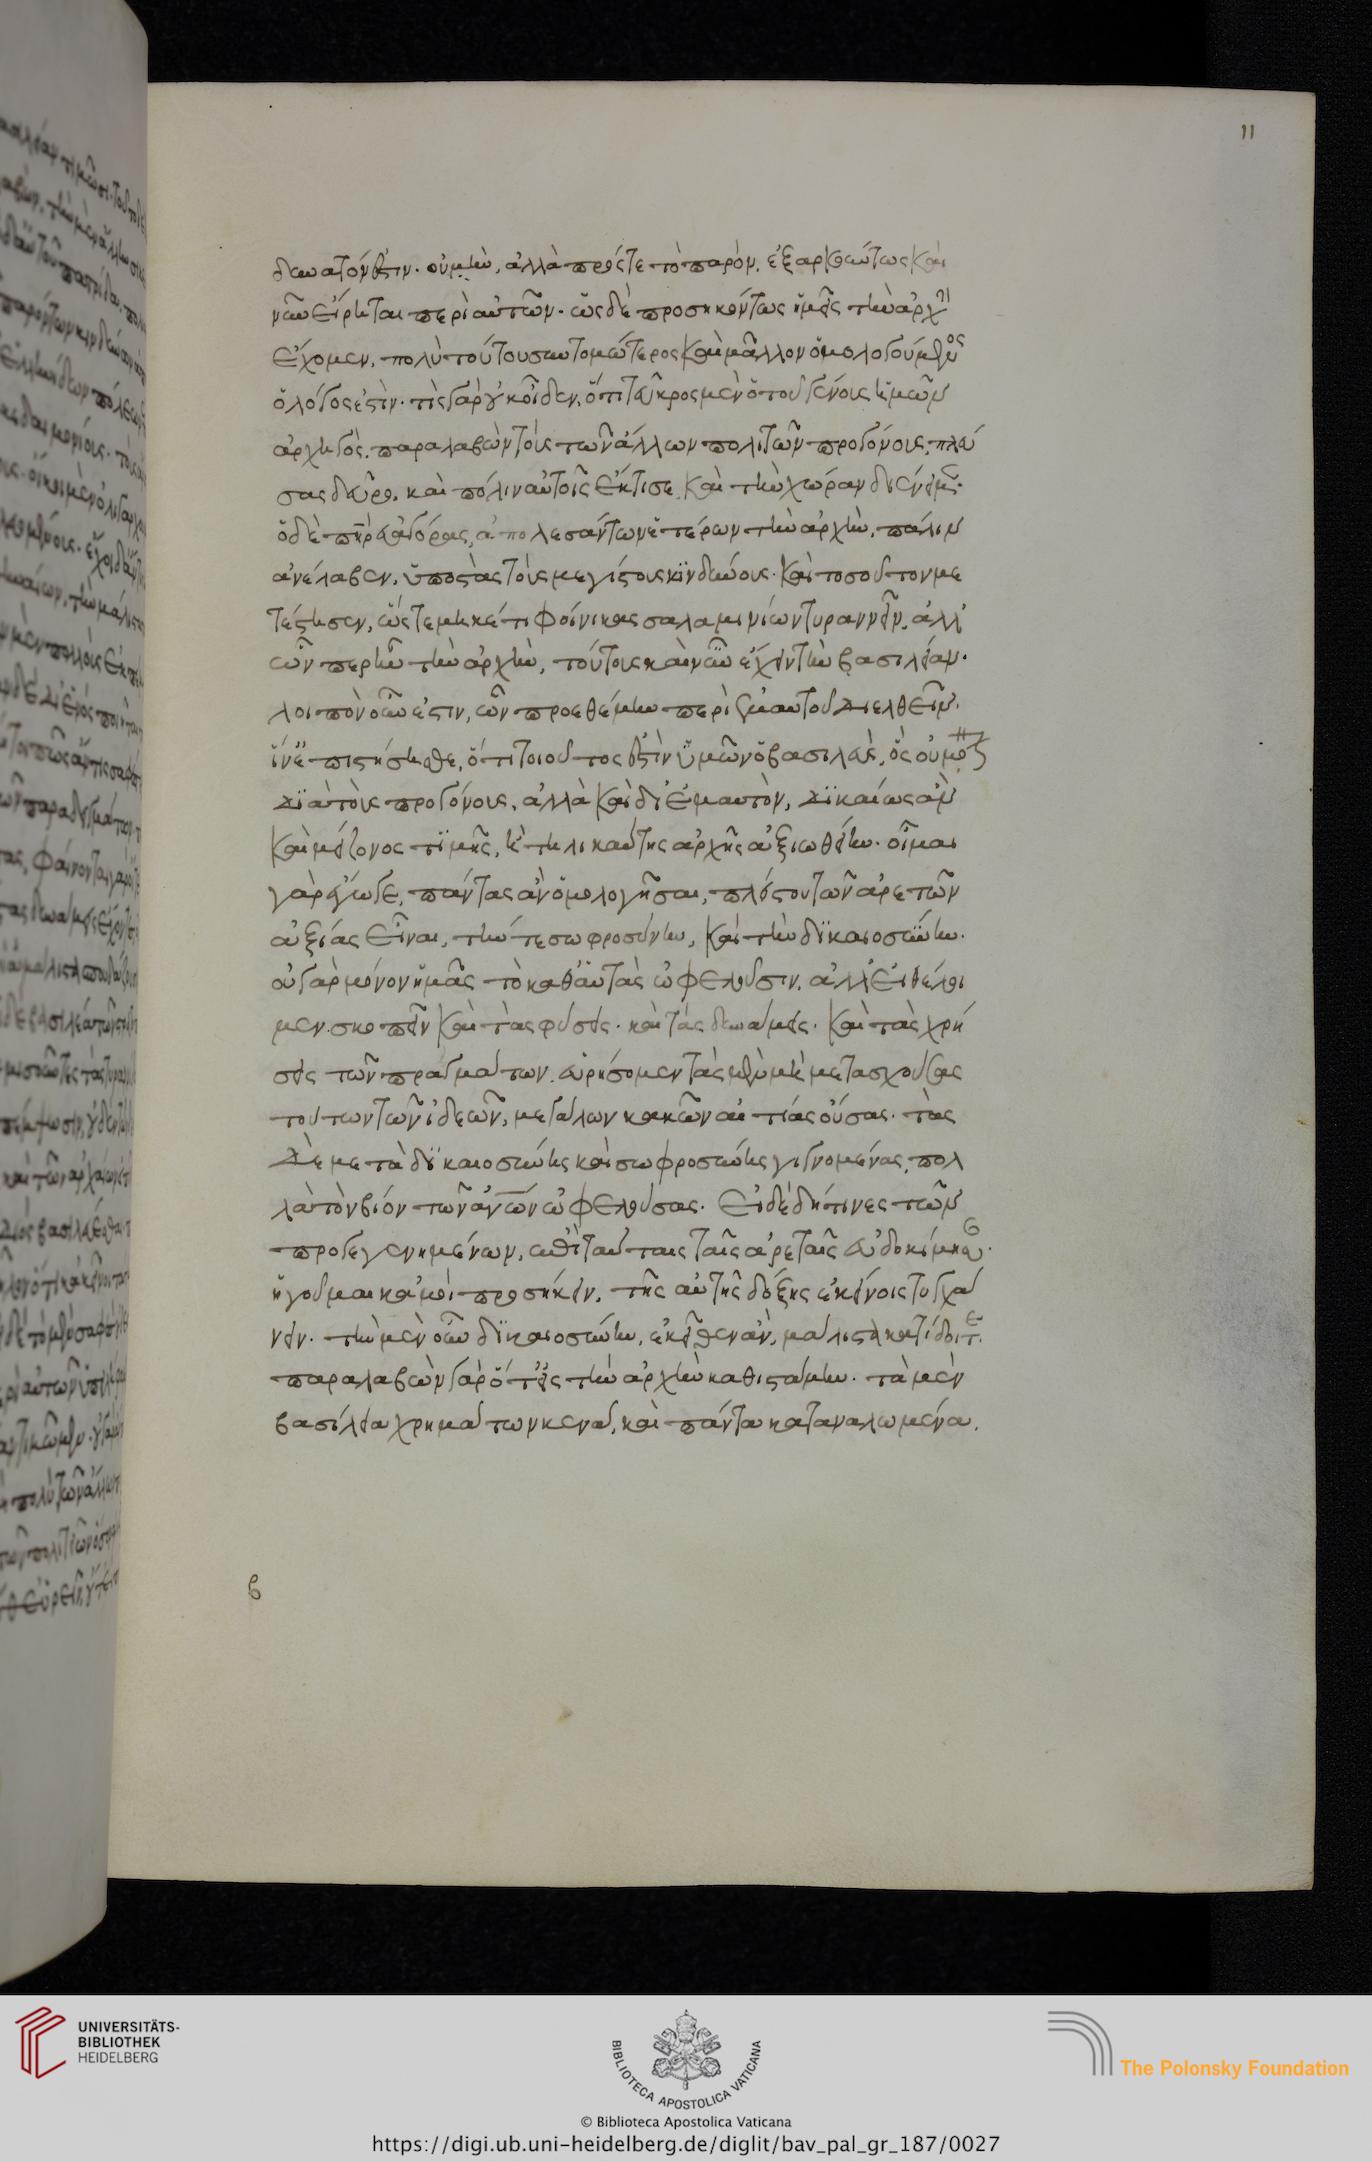 11
δυνατόν ἐστιν. οὐ μὴν, ἀλλὰ πρός γε τὸ παρὸν, ἐξαρκούντως καὶ
νῦν εἴρηται περὶ αὐτῶν. ὡς δὲ προσηκόντως ἡμεῖς τὴν ἀρχὴ
ἔχομεν, πολὺ τούτου συντομώτερος καὶ μᾶλλον ὁμολογούμενος
ὁ λόγος ἐστίν. τίς γὰρ οὐκ οἶδεν, ὅτι τεῦκρος μὲν ὁ τοῦ γένους ἡμῶν
ἀρχηγὸς, παραλαβὼν τοὺς τῶν ἄλλων πολιτῶν προγόνους, πλεύ
σας δεῦρο, καὶ πόλιν αὐτοῖς ἔκτισε, καὶ τὴν χώραν διένειμεν.
ὁ δὲ πατὴρ εὐαγόρας, ἀπολεσάντων ἑτέρων τὴν ἀρχὴν, πάλιν
ἀνέλαβεν, ὑποστὰς τοὺς μεγίστους κινδύνους. καὶ τοσοῦτον με
τέστησεν, ὥστε μηκέτι φοίνικας σαλαμινίων τυραννεῖν, ἀλλ'
ὧν περ ἦν τὴν ἀρχὴν, τούτους καὶ νῦν ἔχειν τὴν βασιλείαν.
λοιπὸν οὖν ἐστιν, ὧν προεθέμην περὶ ἐμαυτοῦ διελθεῖν.
ἵν' ἐπιστήσησθε, ὅτι τοιοῦτος ἐστὶν ὑμῶν ὁ βασιλεὺς, ὃς οὐ μό
διὰ τοὺς προγόνους, ἀλλὰ καὶ δι' ἐμαυτὸν, δικαίως ἂν
καὶ μείζονος τιμῆς, ἢ τηλικαύτης ἀρχῆς ἀξιωθείην. οἶμαι
γὰρ ἐγώγε, πάντας ἂν ὁμολογῆσαι, πλείστου τῶν ἀρετῶν
ἀξίας εἶναι, τήν τε σωφροσύνην, καὶ τὴν δικαιοσύνην.
οὐ γὰρ μόνον ἡμᾶς τὸ καθ' αὑτὰς ὠφελοῦσιν, ἀλλ' εἰ θέλοι
μεν σκοπεῖν καὶ τὰς φύσεις. καὶ τὰς δυνάμεις. καὶ τὰς χρή
σεις τῶν πραγμάτων, εὑρήσομεν τὰς μὲν μὴ μετασχούσας
τούτων τῶν ἰδεῶν, μεγάλων κακῶν αἰτίας οὔσας. τὰς
δὲ μετὰ δικαιοσύνης καὶ σωφροσύνης γιγνομένας, πολ
λὰ τὸν βίον τῶν ἀνῶν ὠφελούσας. εἰ δὲ δή τινες τῶν
προγεγενημένων, ἐπὶ ταύταις ταῖς ἀρεταῖς εὐδοκίμησαν.
ἡγοῦμαι κἀμοὶ προσήκειν, τῆς αὐτῆς δόξης ἐκείνοις τυγχά
νειν. τὴν μὲν οὖν δικαιοσύνην, ἐκεῖθεν ἂν, μάλιστα κατίδοιτε.
παραλαβὼν γὰρ ὅτ' εἰς τὴν ἀρχὴν καθιστάμην. τὰ μὲν
βασίλεια χρημάτων κενὰ, καὶ πάντα καταναλωμένα.
β
UNIVERSITÄTS-
BIBLIOTHEK
HEIDELBERG
BIBLIOTECA APOSTOLICA VATICANA
The Polonsky Foundation
© Biblioteca Apostolica Vaticana
https://digi.ub.uni-heidelberg.de/diglit/bav_pal_gr_187/0027